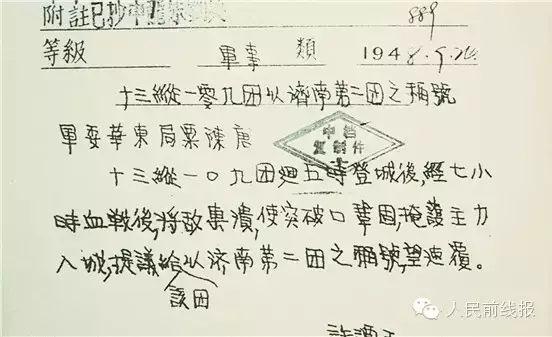 附註已抄中 889
等級 軍事類 1948.9.
十三縱一零九团以濟南第二团之稱號
軍委華東局粟陳唐
中档
复制件
十三縱一〇九团迴五時登城後,經七小
時血戰後,將敌潰,使突破口鞏固,掩護主力
入城,提議給以济南第二团之稱號,望速覆。
該团
許譚王
人民前线报